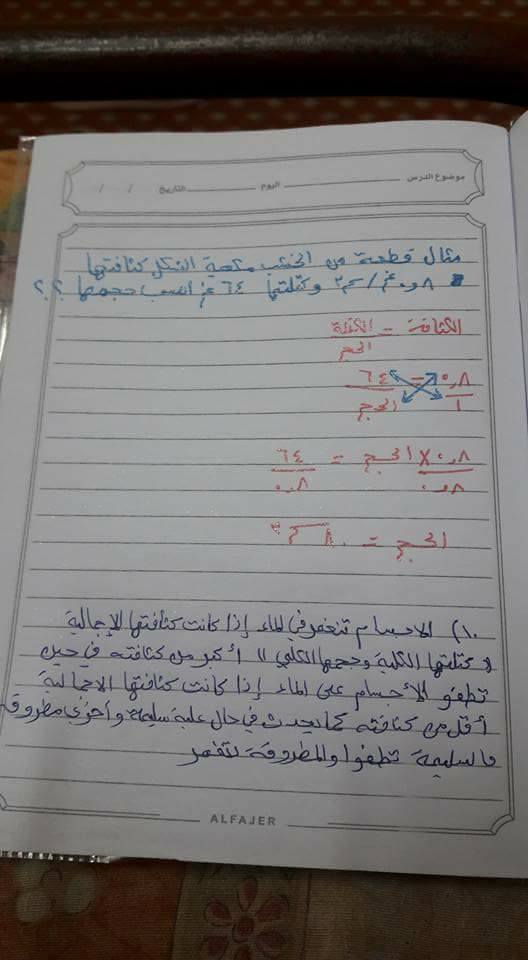 موضوع الدرس اليوم التاريخ / /
مثال قطعة من الخشب مكعبة الشكل كثافتها
٠,٨ غم/سم٣ وكتلتها ٦٤ غم احسب حجمها ؟؟
الكثافة = الكتلة
الحجم
٠,٨ = ٦٤
١ الحجم
٠,٨ × الحجم = ٦٤
٠,٨ ٠,٨
الحجم = ٨٠ سم٣
١٠) الاجسام تنغمر في الماء إذا كانت كثافتها الإجمالية
(( كتلتها الكلية وحجمها الكلي )) أكبر من كثافته في حين
تطفو الأجسام على الماء إذا كانت كثافتها الاجمالية
أقل من كثافته كما يحدث في حال علبة سليمة وأخرى مطروقة
فالسليمة تطفوا والمطروقة تنغمر
ALFAJER